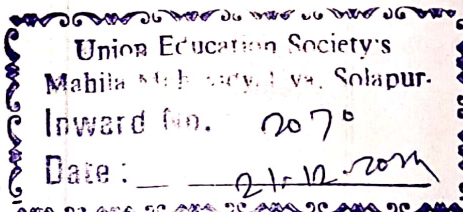 Union Education Society's
Mahila Mahavidyalaya, Solapur.
Inward No. 2070
Date : 21-12-